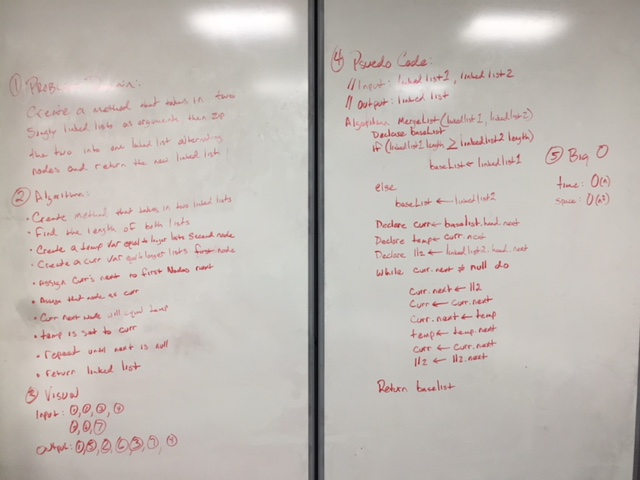 ① Problem Domain:
Create a method that takes in two
Singly linked lists as arguments then zip
the two into one linked list alternating
nodes and return the new linked list
② Algorithm:
• Create method that takes in two linked lists
• Find the length of both lists
• Create a temp var equal to larger lists Second node
• Create a curr var equals larger lists first node
• Assign curr's next to first Nodes next
• Assign that node as curr
• Curr next node will equal temp
• temp is set to curr
• repeat until next is null
• return linked list
③ Visual
Input: ①,②,③,④
⑦
Output: ①,⑤,②,⑥,③,⑦,④
④ Psuedo Code:
// Input: linked list1, linked list2
// output: linked list
Algorithm MergeList(linkedlist1, linkedlist2)
Declare baseList
if (linkedlist1 length ≥ linkedlist2 length)
baseList ← linkedlist1
else
baseList ← linkedlist2
Declare curr ← baselist.head.next
Declare temp ← curr.next
Declare ll2 ← linkedlist2.head.next
While curr.next ≠ null do
curr.next ← ll2
Curr ← curr.next
Curr.next ← temp
temp ← temp.next
curr ← curr.next
ll2 ← ll2.next
Return baselist
⑤ Big O
time: O(n)
space: O(n2)